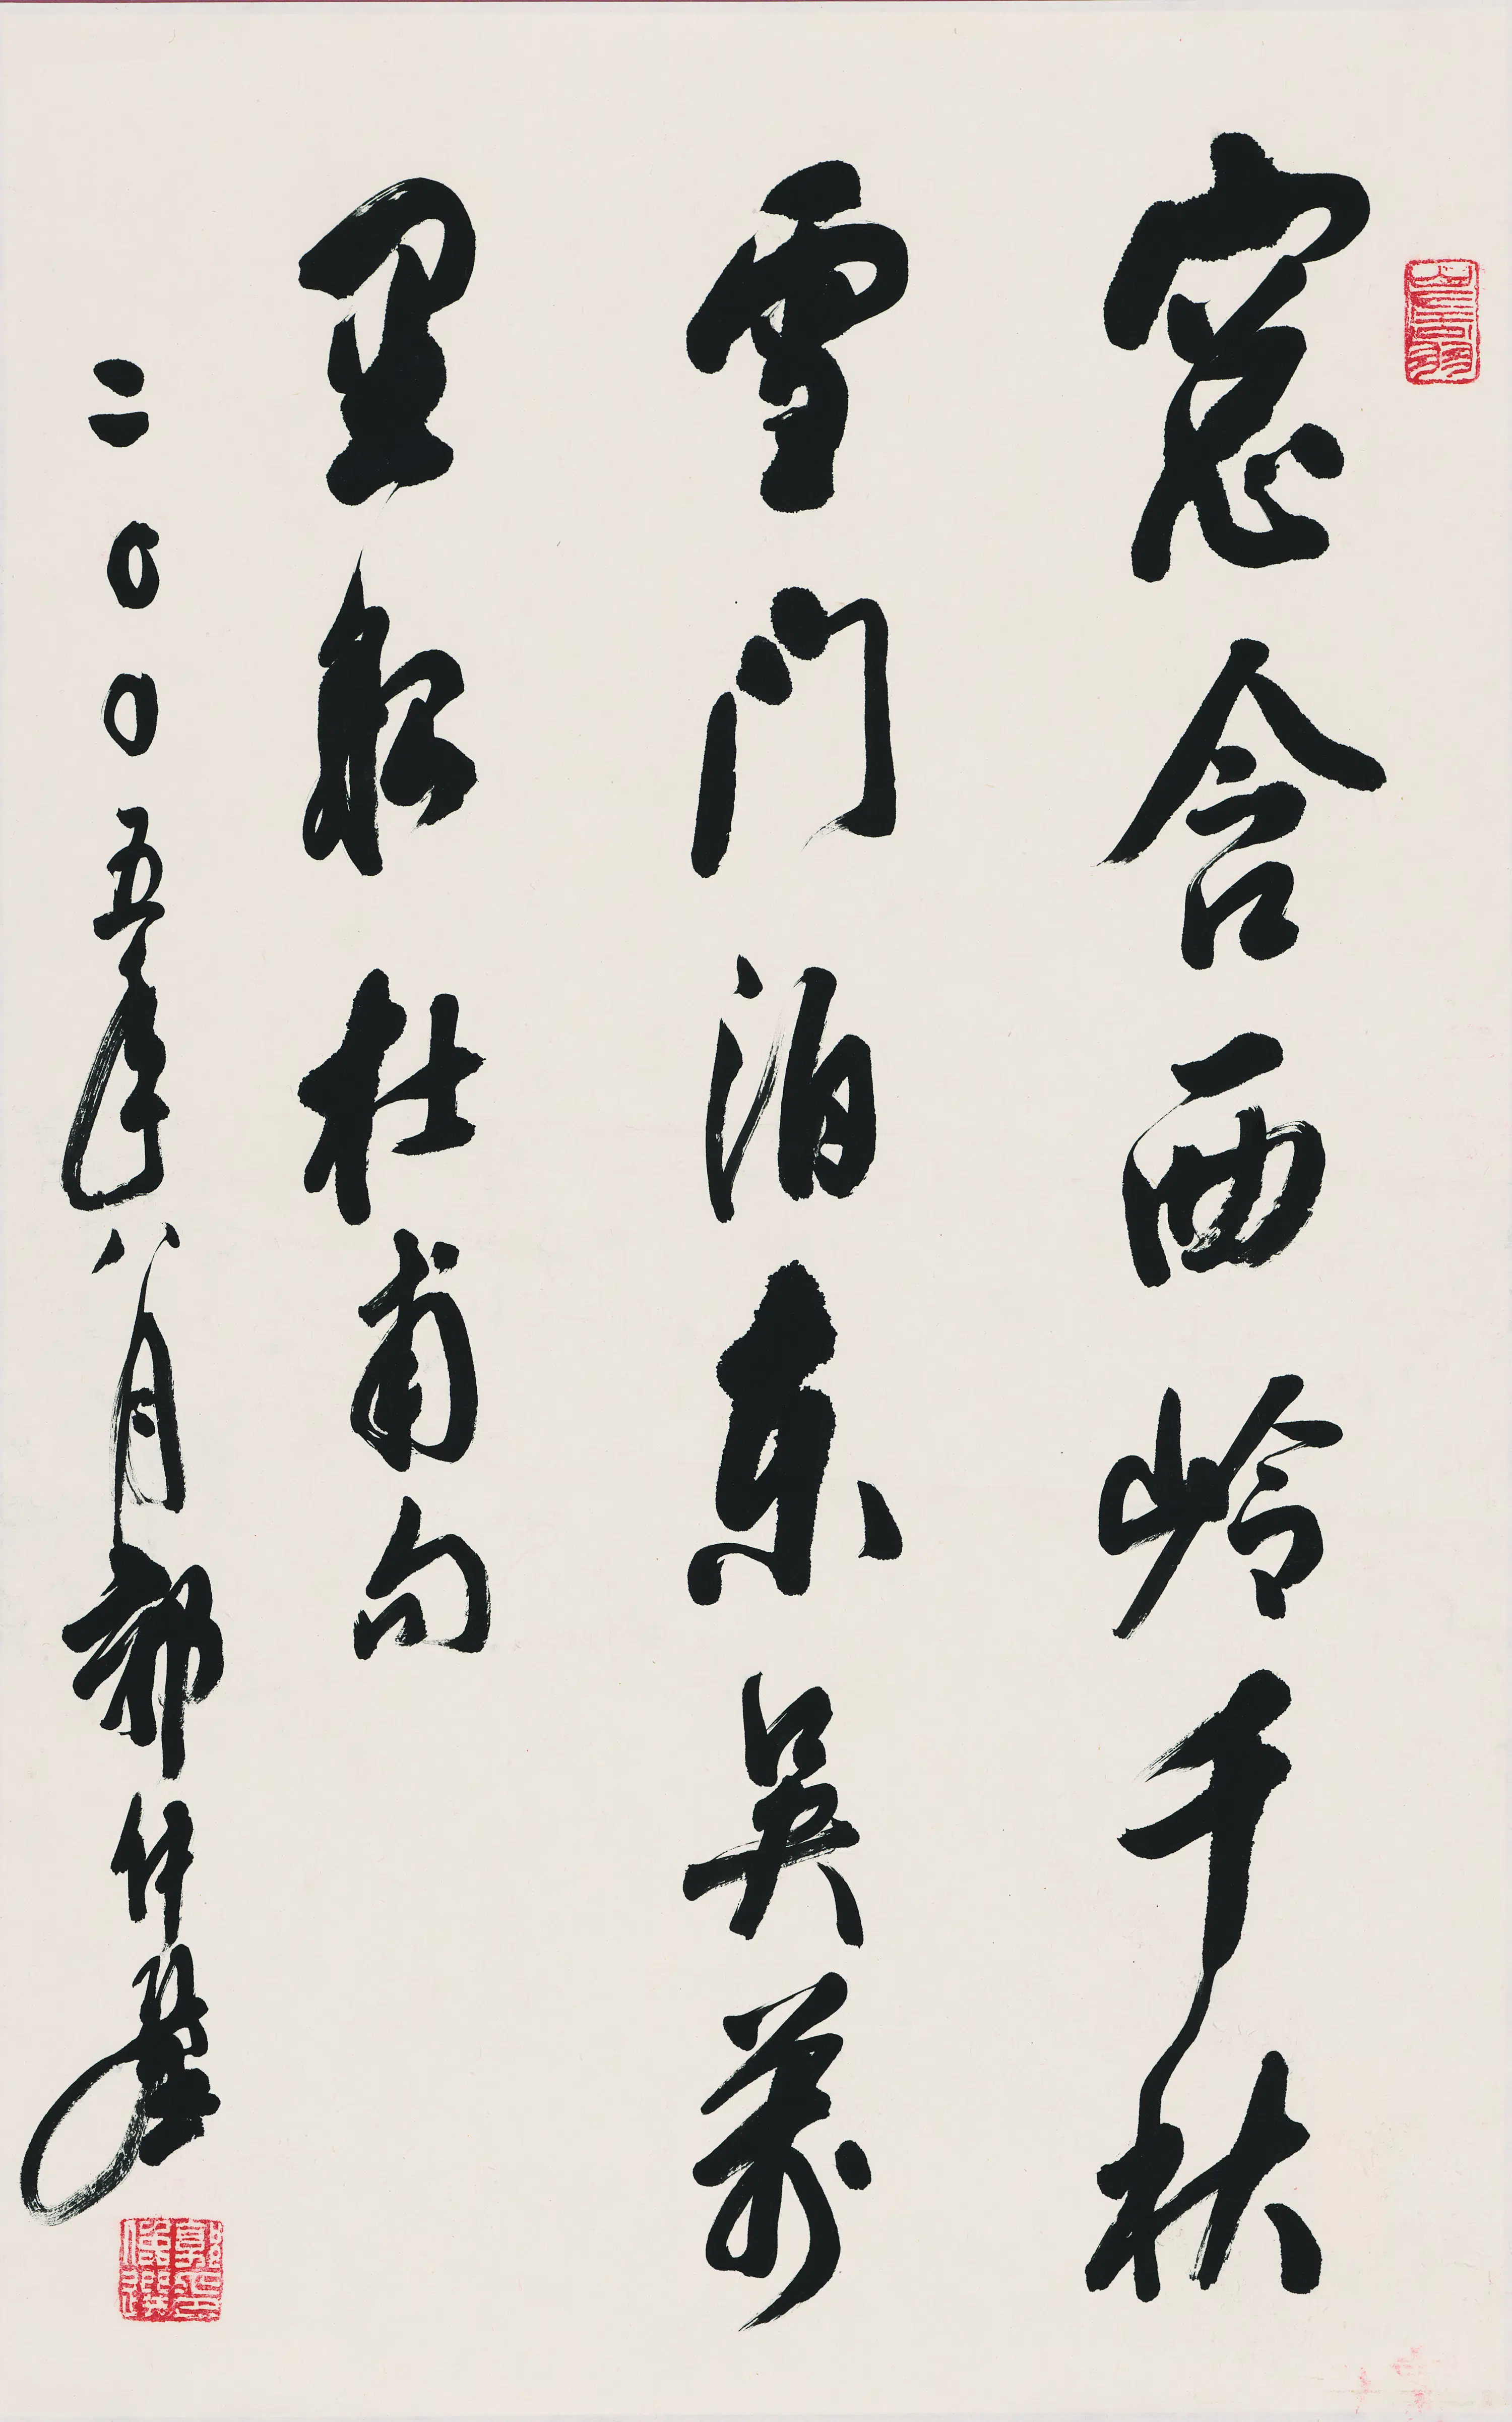 窓含西岭千秋
雪门泊东吴万
里船 杜甫句
二〇〇五年八月郭仲选